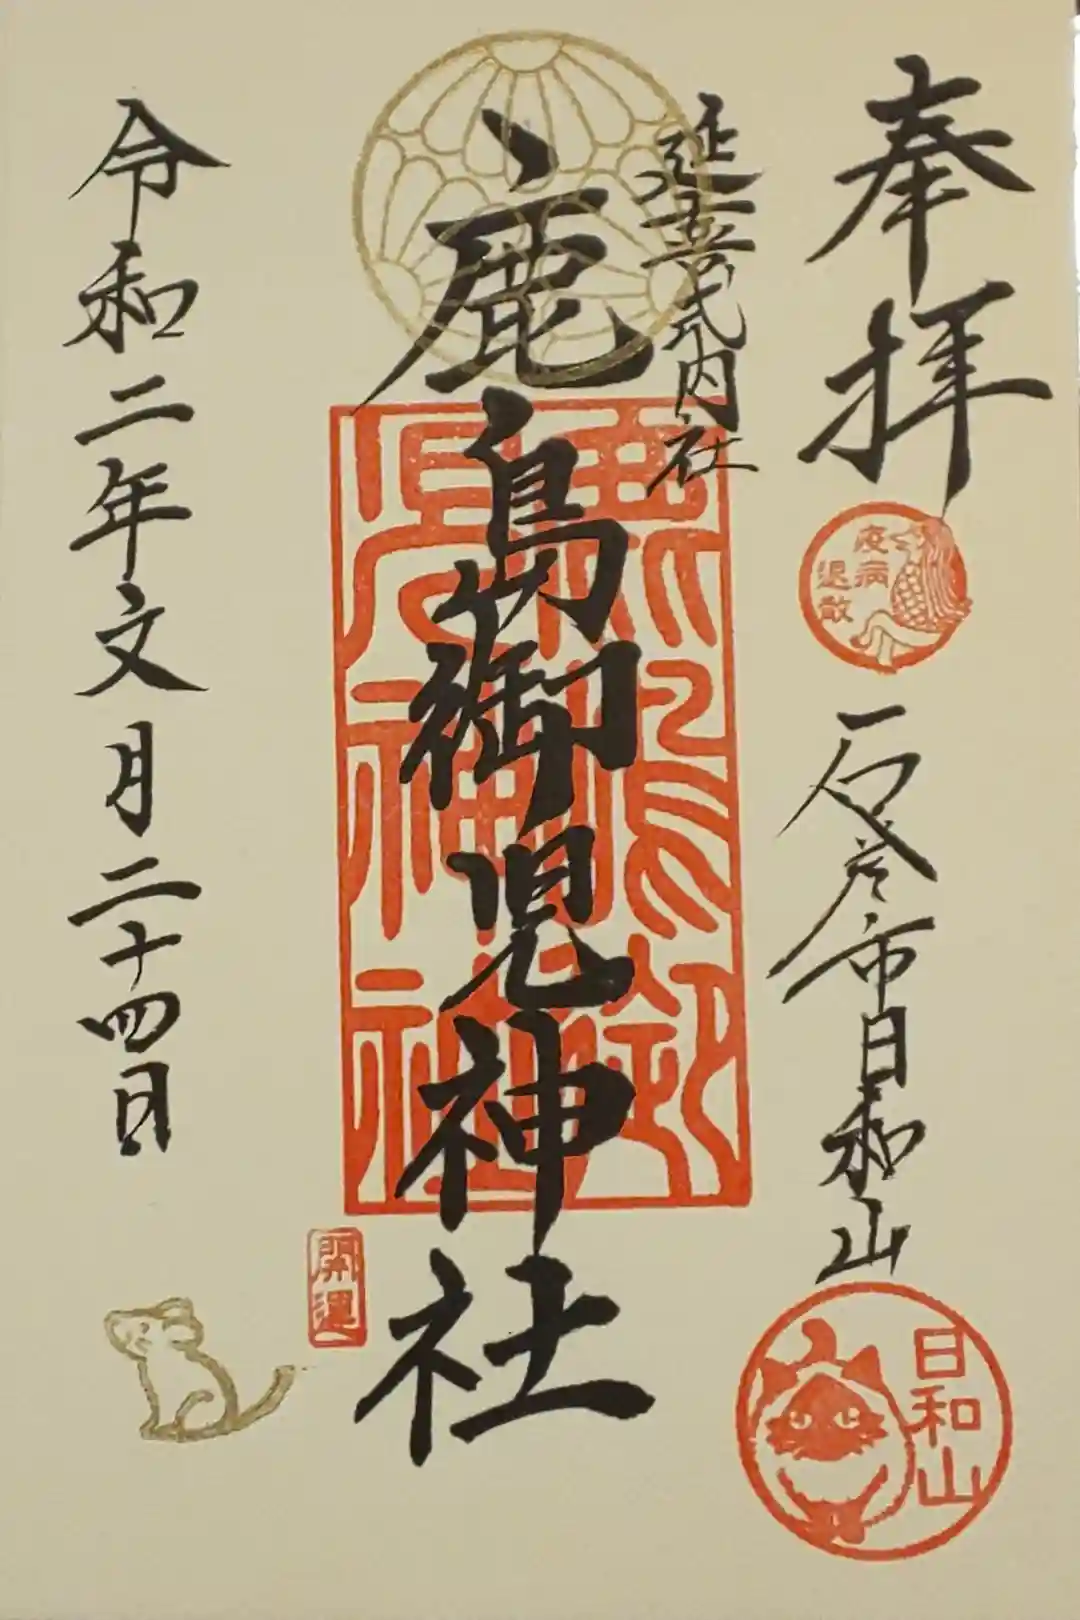 奉拝
疫病
退散
石巻市日和山
日和山
延喜式内社
鹿島御児神社
鹿島御
児神社
開運
令和二年文月二十四日